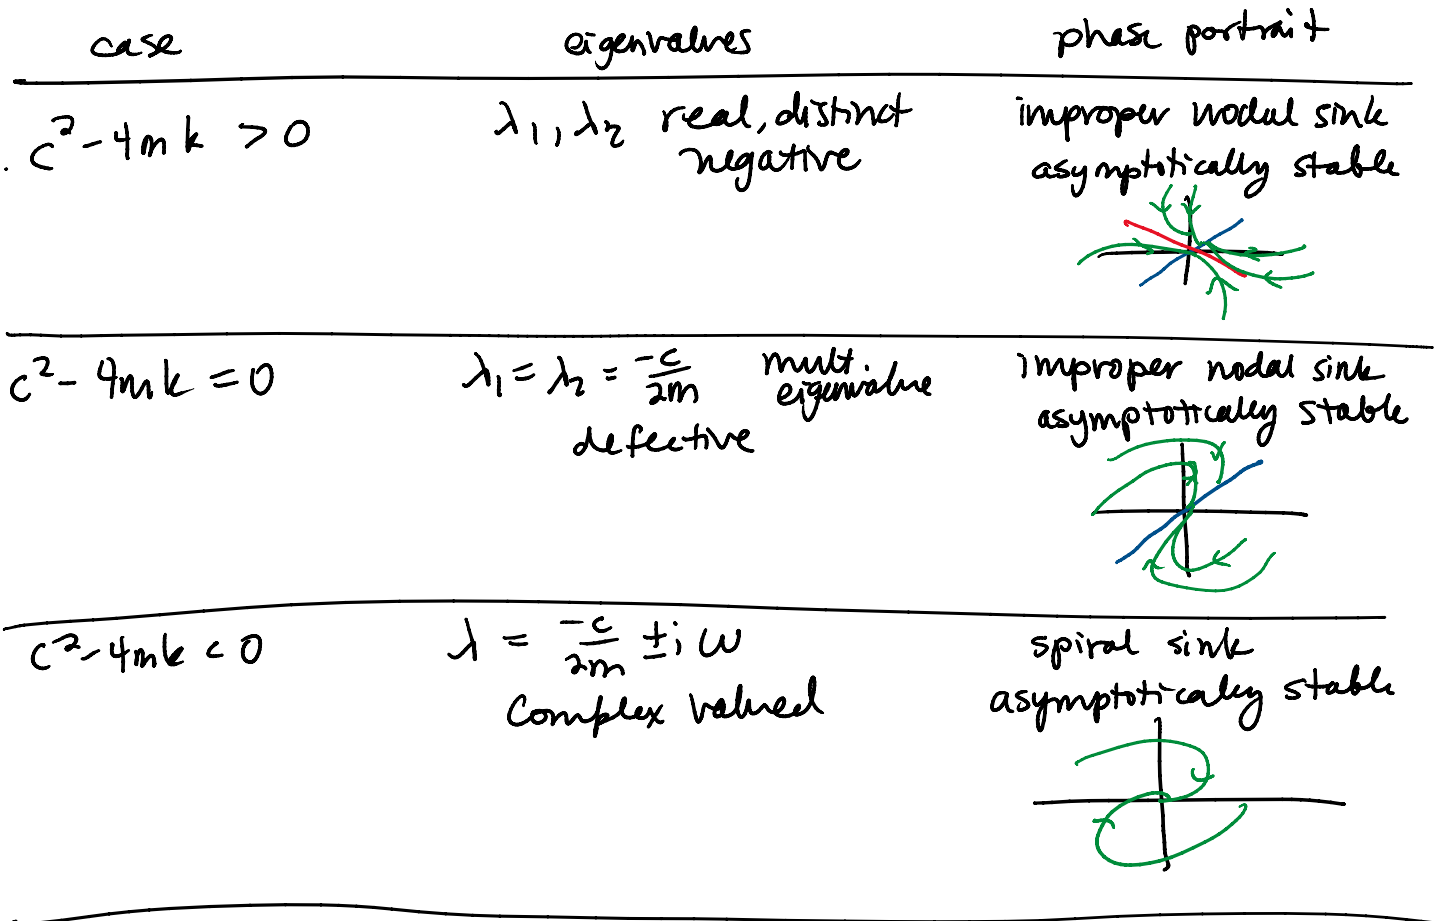 case eigenvalues phase portrait
c² - 4mk > 0 λ₁, λ₂ real, distinct negative improper nodal sink asymptotically stable
c² - 4mk = 0 λ₁ = λ₂ = -c/2m mult. eigenvalue defective improper nodal sink asymptotically stable
c² - 4mk < 0 λ = -c/2m ± i ω complex valued spiral sink asymptotically stable